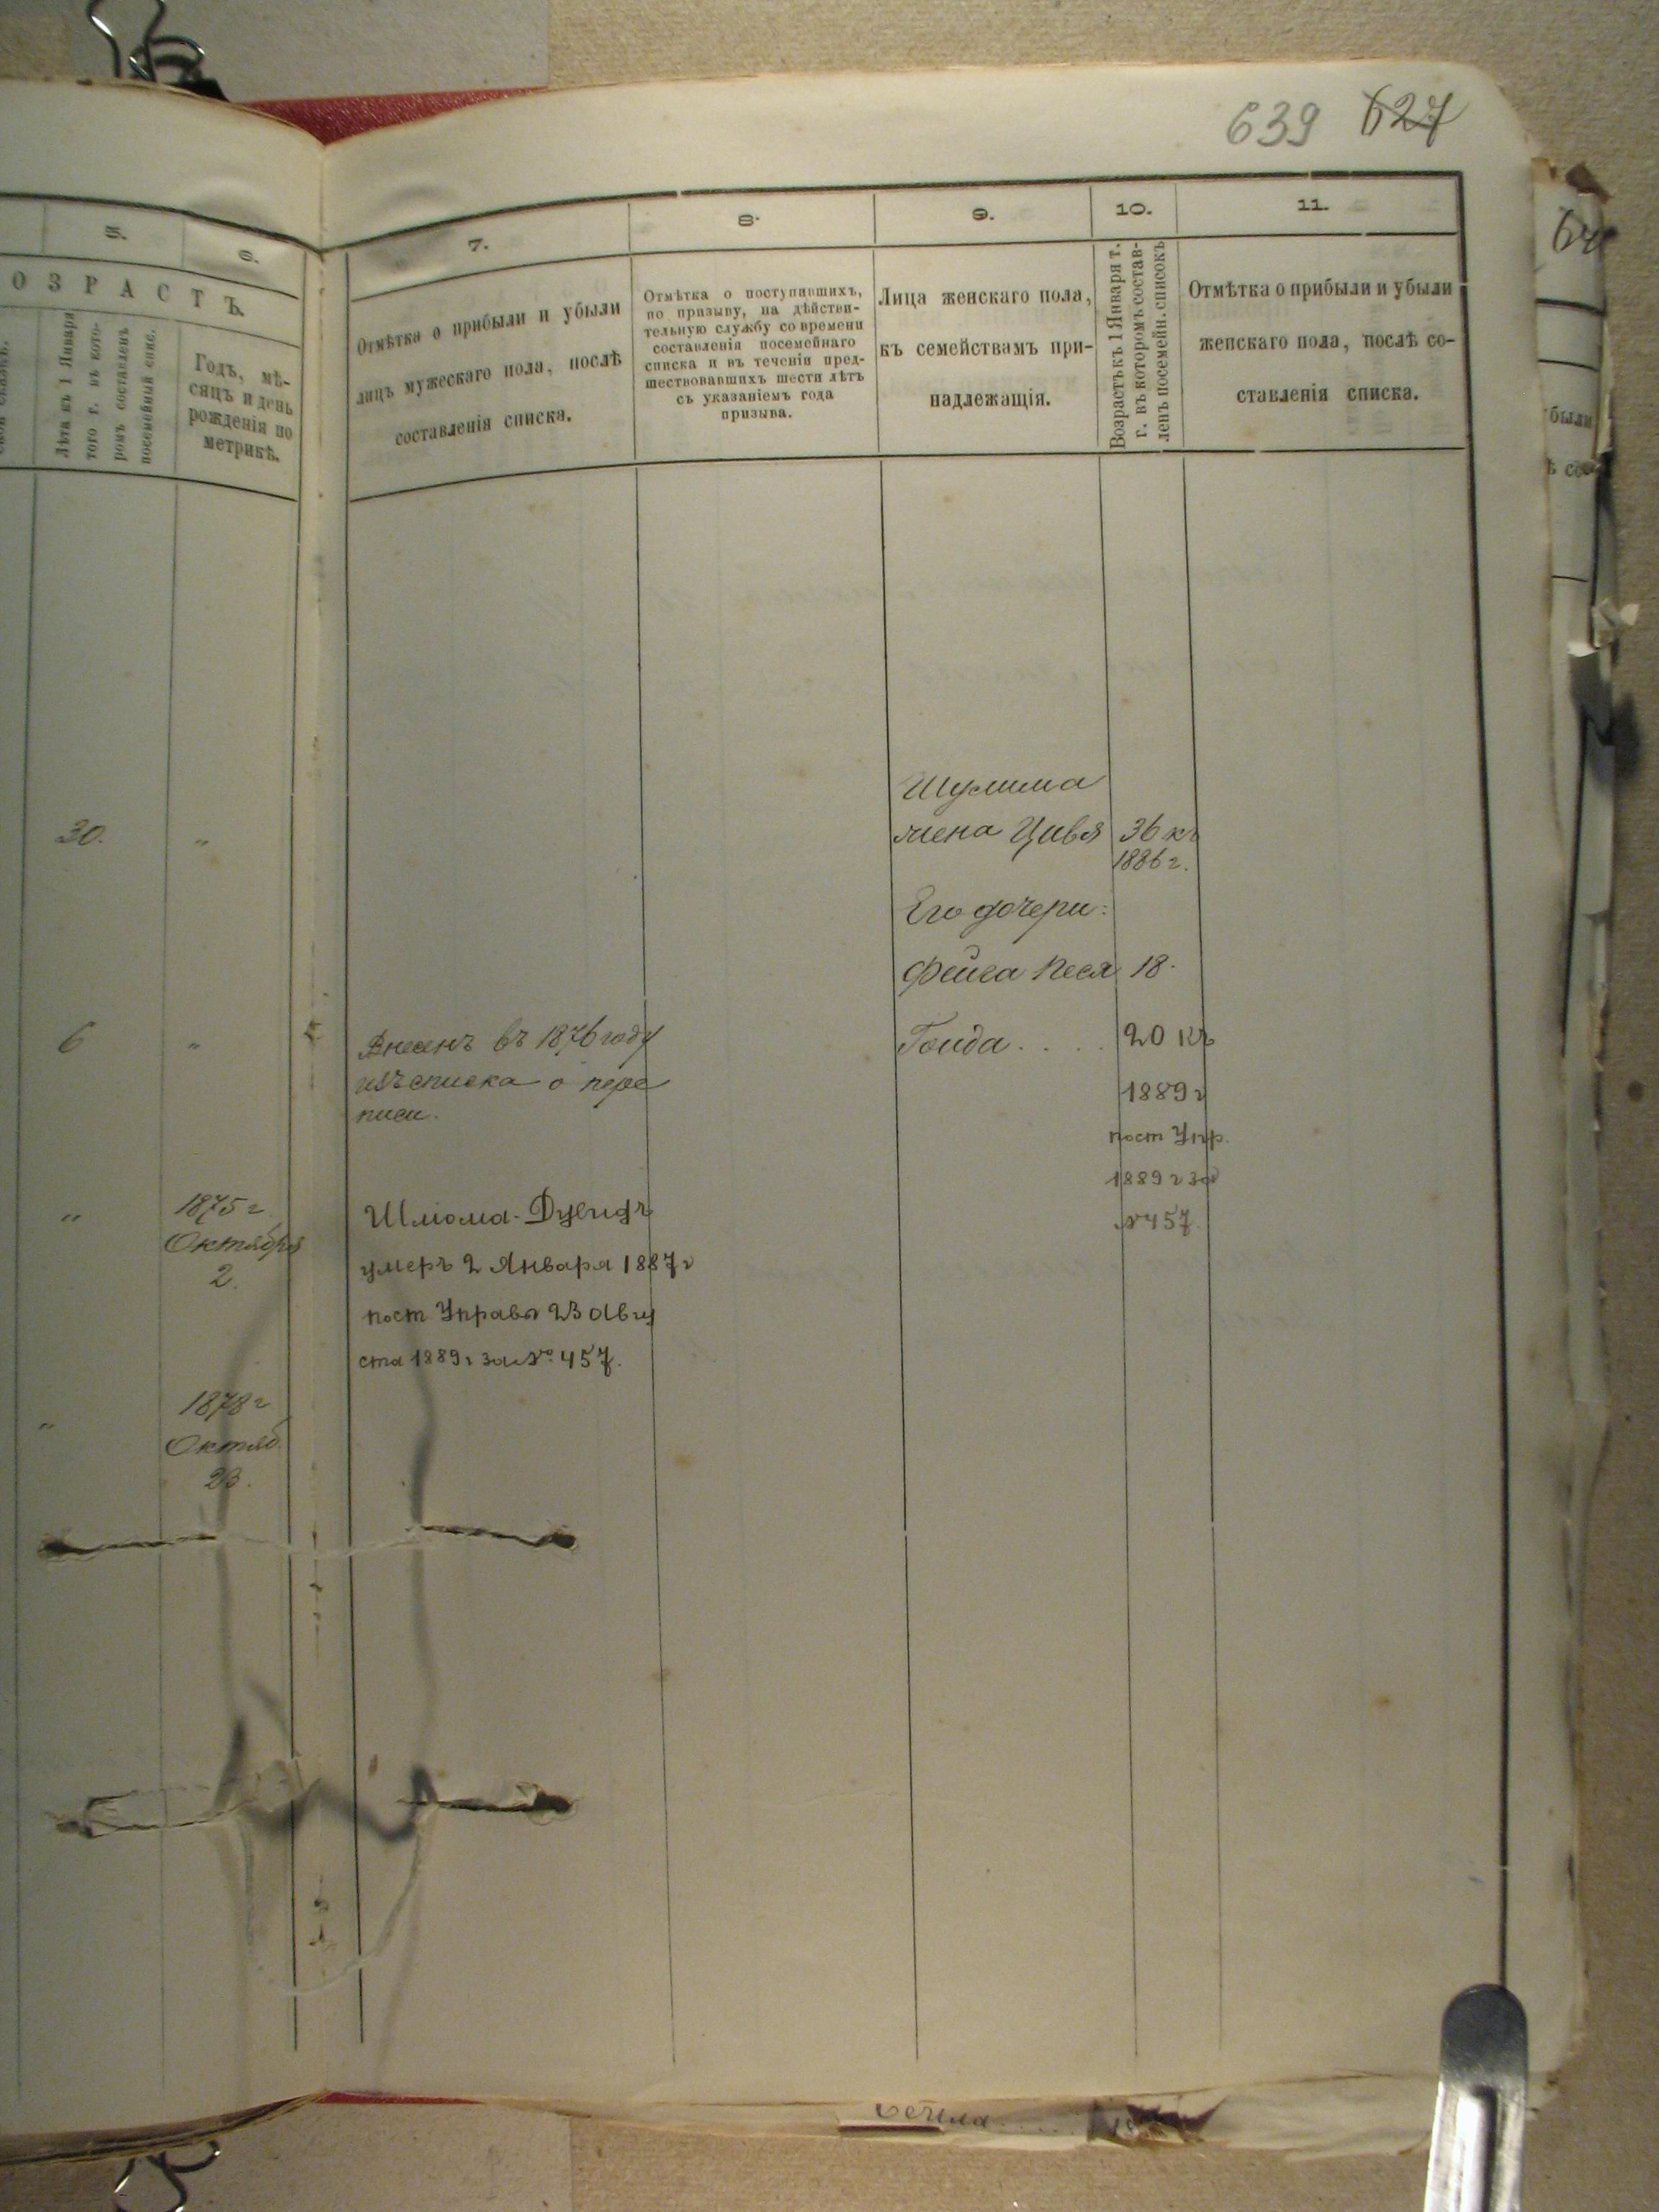 639 627
5.
6.
7.
8.
9.
10.
11.
ОЗРАСТЪ.
Лѣта къ 1 Января
того г. въ кото-
ромъ составленъ
посемейный спис.
Годъ, мѣ-
сяцъ и день
рожденія по
метрикѣ.
Отмѣтка о прибыли и убыли
лицъ мужескаго пола, послѣ
составленія списка.
Отмѣтка о поступившихъ,
по призыву, на дѣйстви-
тельную службу со времени
составленія посемейнаго
списка и въ теченіи пред-
шествовавшихъ шести лѣтъ
съ указаніемъ года
призыва.
Лица женскаго пола,
къ семействамъ при-
надлежащія.
Возрастъ къ 1 Января т.
г. въ которомъ состав-
ленъ посемейн. списокъ
Отмѣтка о прибыли и убыли
женскаго пола, послѣ со-
ставленія списка.
30. "
6 "
" 1875 г
Октября
2.
" 1878 г
Октяб.
23.
Внесенъ въ 1876 году
изъ списка о пере
писи.
Шліома-Дувидъ
умеръ 2 Января 1887 г
пост Управы 23 Авгу
ста 1889 г за № 457.
Шулима
жена Цивя 36 къ
1886 г.
Его дочери:
Фейга Песя 18.
Голда.... 20 къ
1889 г
пост Упр.
1889 г за
№ 457
были